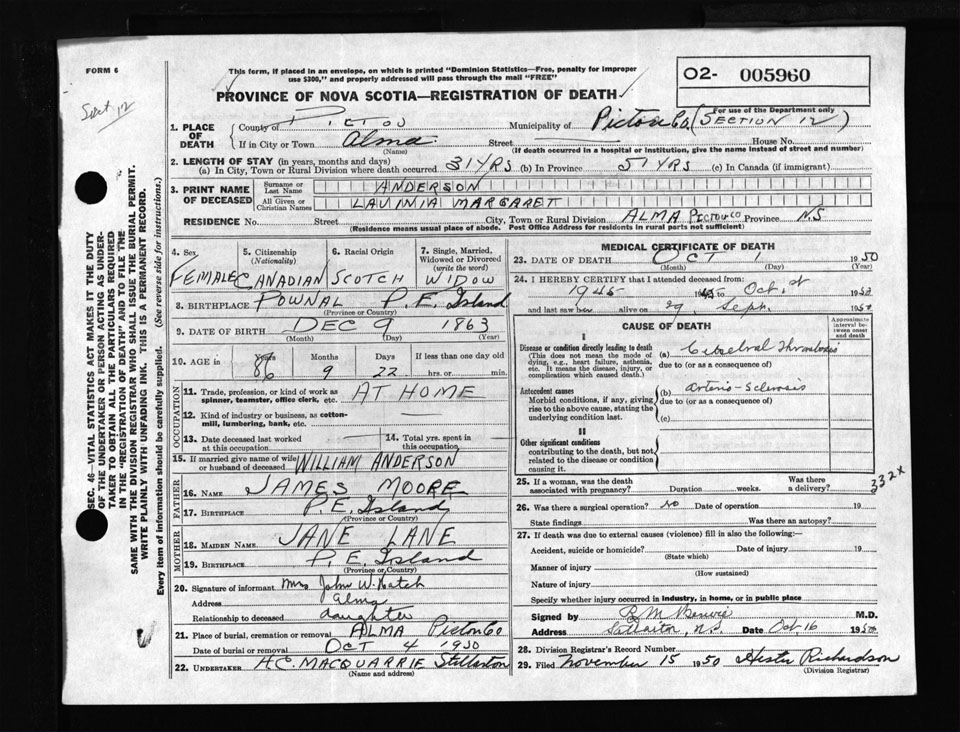 FORM 6
This form, if placed in an envelope, on which is printed "Dominion Statistics—Free, penalty for improper
use $300," and properly addressed will pass through the mail "FREE"
O2- 005960
Sect. 12
PROVINCE OF NOVA SCOTIA—REGISTRATION OF DEATH
For use of the Department only
1. PLACE OF DEATH
County of Pictou Municipality of Pictou Co. (Section 12)
If in City or Town Alma Street House No.
(Name) (If death occurred in a hospital or institution, give the name instead of street and number)
2. LENGTH OF STAY (in years, months and days)
(a) In City, Town or Rural Division where death occurred 31 YRS (b) In Province 51 YRS (c) In Canada (if immigrant)
3. PRINT NAME OF DECEASED
Surname or Last Name ANDERSON
All Given or Christian Names LAVINIA MARGARET
RESIDENCE No. Street City, Town or Rural Division ALMA PICTOU CO Province N.S
(Residence means usual place of abode. Post Office Address for residents in rural parts not sufficient)
4. Sex FEMALE
5. Citizenship (Nationality) CANADIAN
6. Racial Origin SCOTCH
7. Single, Married, Widowed or Divorced (write the word) WIDOW
8. BIRTHPLACE POWNAL P.E. Island
(Province or Country)
9. DATE OF BIRTH DEC 9 1863
(Month) (Day) (Year)
10. AGE in Years 86 Months 9 Days 22 If less than one day old hrs. or min.
OCCUPATION
11. Trade, profession, or kind of work as spinner, teamster, office clerk, etc. AT HOME
12. Kind of industry or business, as cotton-mill, lumbering, bank, etc.
13. Date deceased last worked at this occupation
14. Total yrs. spent in this occupation
15. If married give name of wife or husband of deceased WILLIAM ANDERSON
FATHER
16. NAME JAMES MOORE
17. BIRTHPLACE P.E. Island
(Province or Country)
MOTHER
18. MAIDEN NAME JANE LANE
19. BIRTHPLACE P.E. Island
(Province or Country)
20. Signature of informant Mrs John W. Hatch
Address Alma
Relationship to deceased daughter
21. Place of burial, cremation or removal ALMA Pictou Co
Date of burial or removal OCT 4 1950
22. UNDERTAKER H.C. MACQUARRIE Stellarton
(Name and address)
MEDICAL CERTIFICATE OF DEATH
23. DATE OF DEATH OCT 1 1950
(Month) (Day) (Year)
24. I HEREBY CERTIFY that I attended deceased from:
1945 to Oct. 1950
and last saw her alive on 29 Sept. 1950
CAUSE OF DEATH
Approximate interval between onset and death
I
Disease or condition directly leading to death
(This does not mean the mode of dying, e.g., heart failure, asthenia, etc. It means the disease, injury, or complication which caused death.)
(a) Cerebral Thrombosis
due to (or as a consequence of)
Antecedent causes
Morbid conditions, if any, giving rise to the above cause, stating the underlying condition last.
(b) Arterio-Sclerosis
due to (or as a consequence of)
(c)
II
Other significant conditions
contributing to the death, but not related to the disease or condition causing it.
332X
25. If a woman, was the death associated with pregnancy? Duration weeks. Was there a delivery?
26. Was there a surgical operation? No Date of operation 19
State findings Was there an autopsy?
27. If death was due to external causes (violence) fill in also the following:
Accident, suicide or homicide? Date of injury 19
(State which)
Manner of injury
(How sustained)
Nature of injury
Specify whether injury occurred in industry, in home, or in public place
Signed by M.D.
Address Stellarton, N.S. Date Oct 16 1950
28. Division Registrar's Record Number
29. Filed November 15 1950 Hester Richardson
(Division Registrar)
SEC. 46—VITAL STATISTICS ACT MAKES IT THE DUTY
OF THE UNDERTAKER OR PERSON ACTING AS UNDER-
TAKER TO OBTAIN ALL THE PARTICULARS REQUIRED
IN THE "REGISTRATION OF DEATH" AND TO FILE THE
SAME WITH THE DIVISION REGISTRAR WHO SHALL ISSUE THE BURIAL PERMIT.
WRITE PLAINLY WITH UNFADING INK. THIS IS A PERMANENT RECORD.
Every item of information should be carefully supplied. (See reverse side for instructions.)